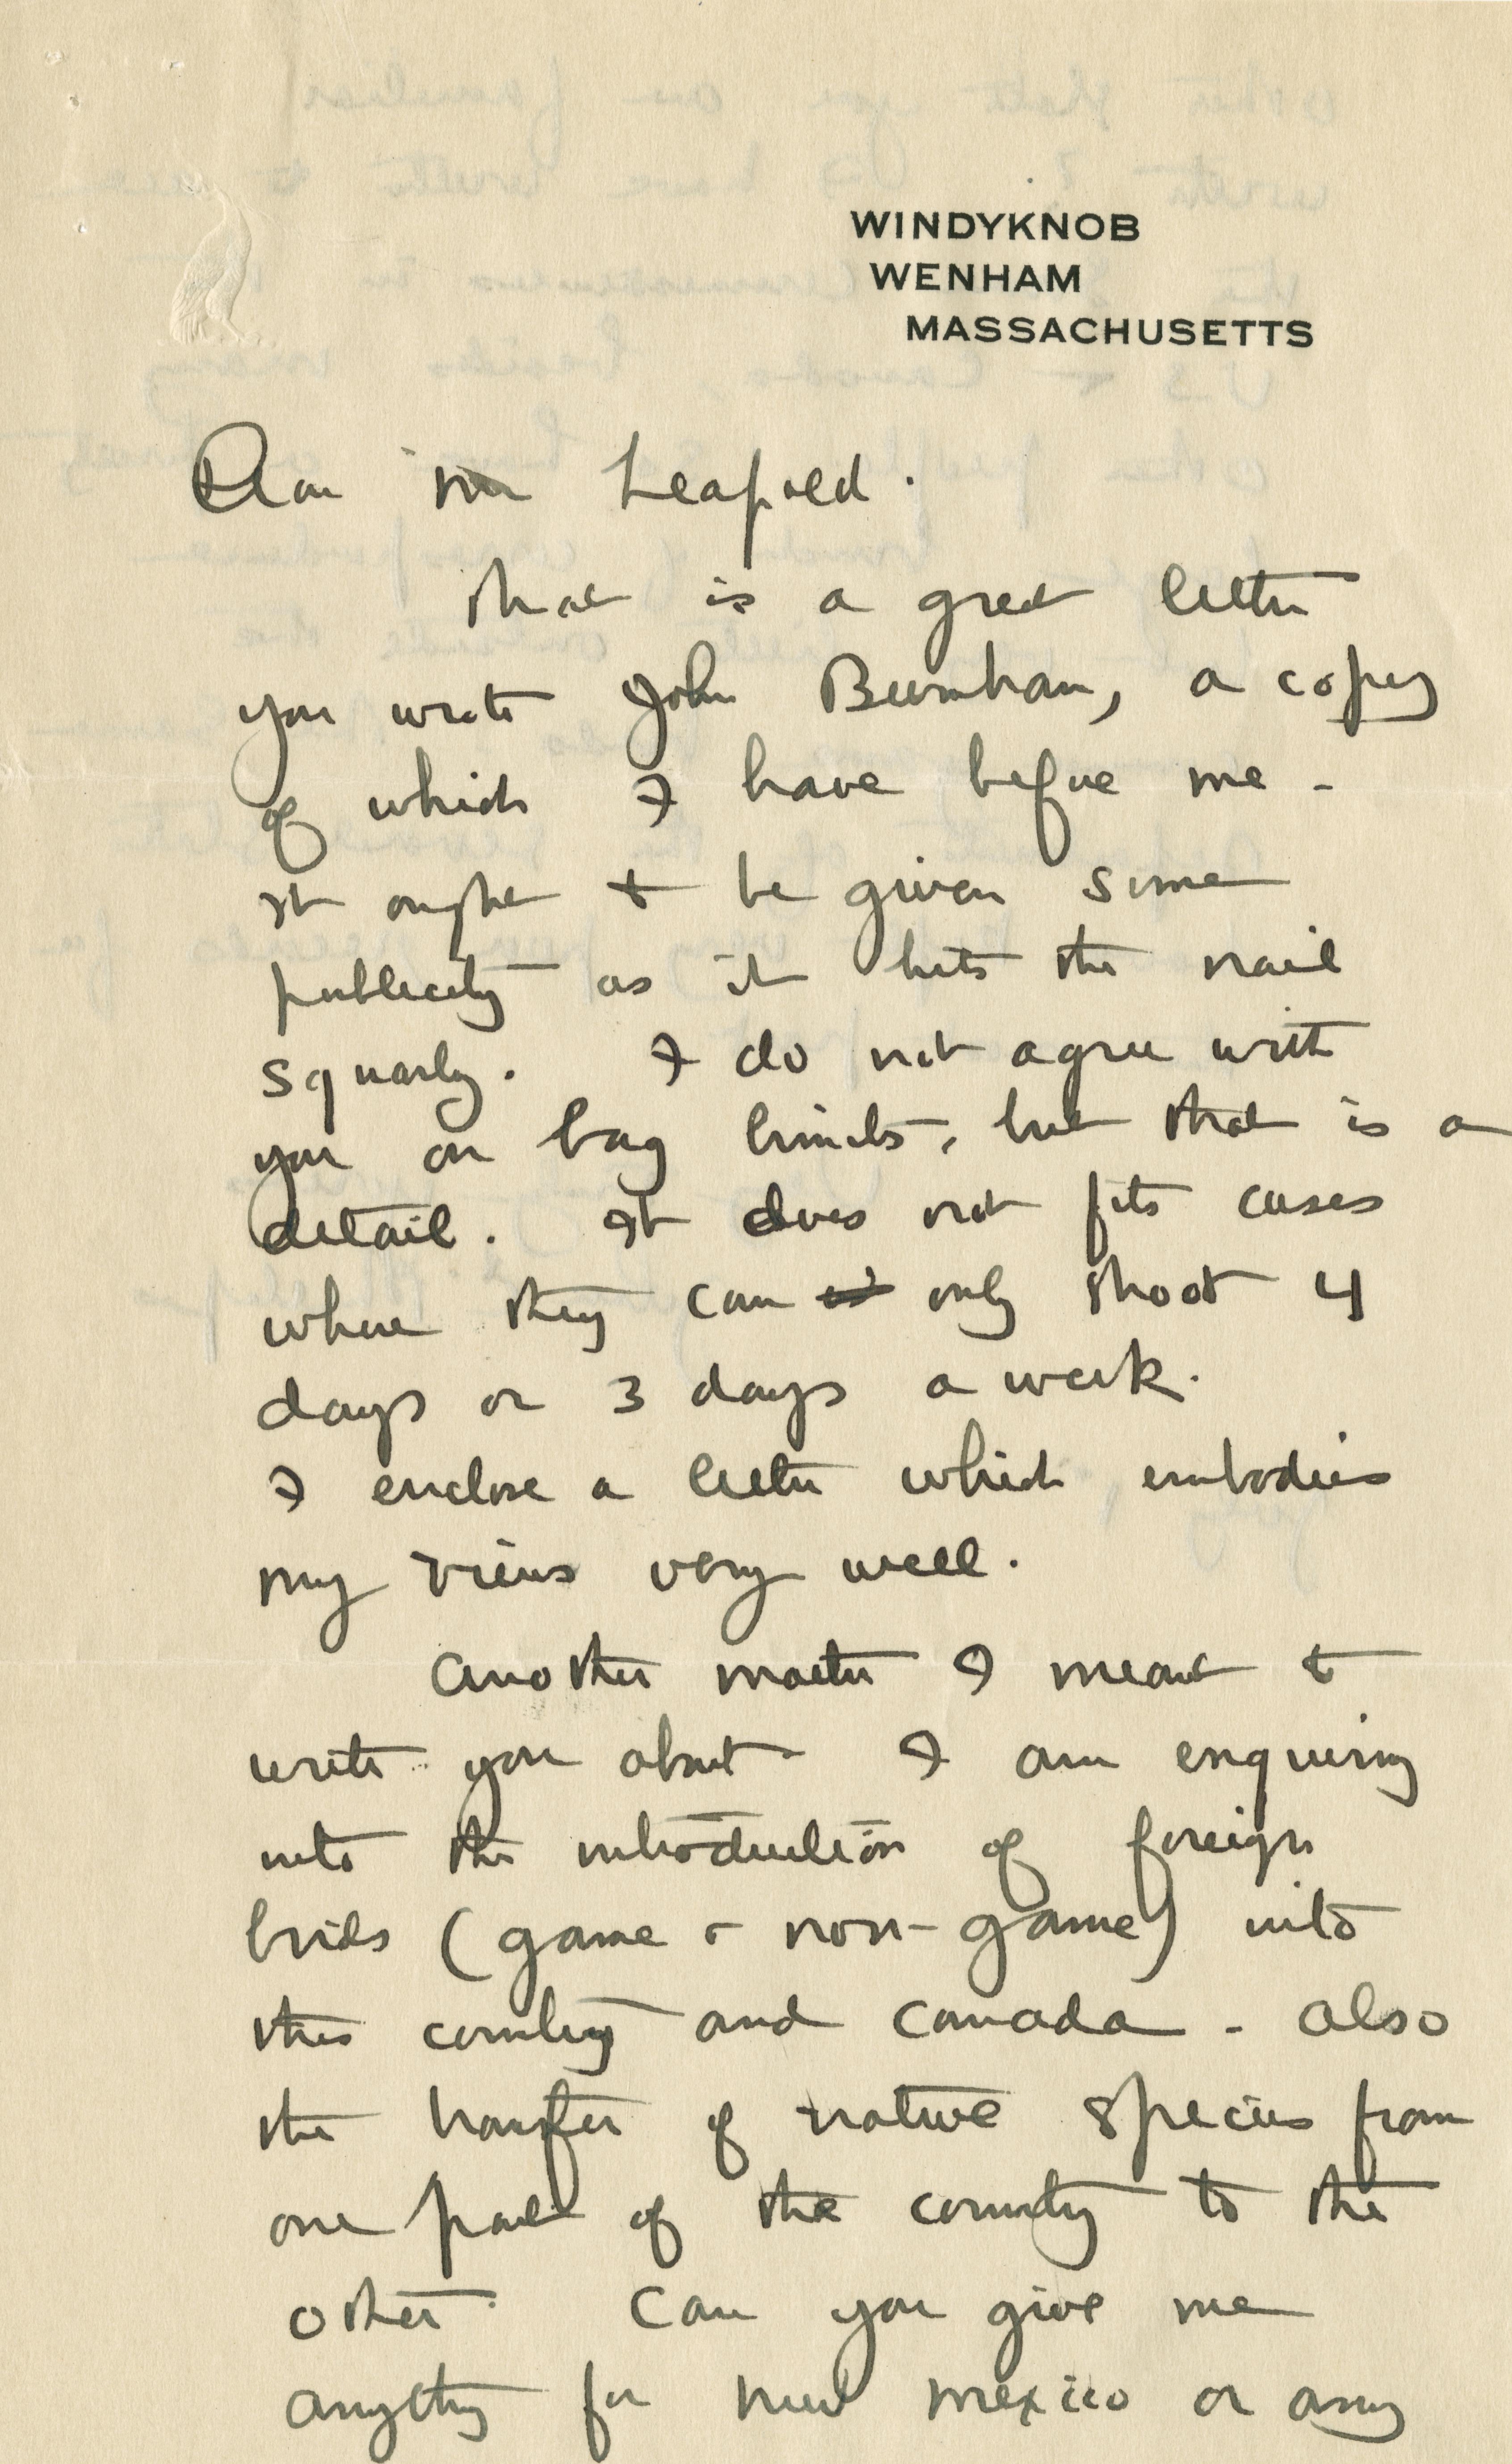 WINDYKNOB
WENHAM
MASSACHUSETTS
Dear Mr Leopold.
That is a great letter
you wrote John Burnham, a copy
of which I have before me -
It ought to be given some
publicity as it hits the nail
squarly. I do not agree with
you on bag limits, but that is a
detail. It does not fits cases
where they can only shoot 4
days or 3 days a week.
I enclose a letter which embodies
my views very well.
Another matter I meant to
write you about - I am enquiring
into the introduction of foreign
birds (game & non-game) into
this country and Canada - also
the transfer of native species from
one part of the country to the
other. Can you give me
anything for New Mexico or any